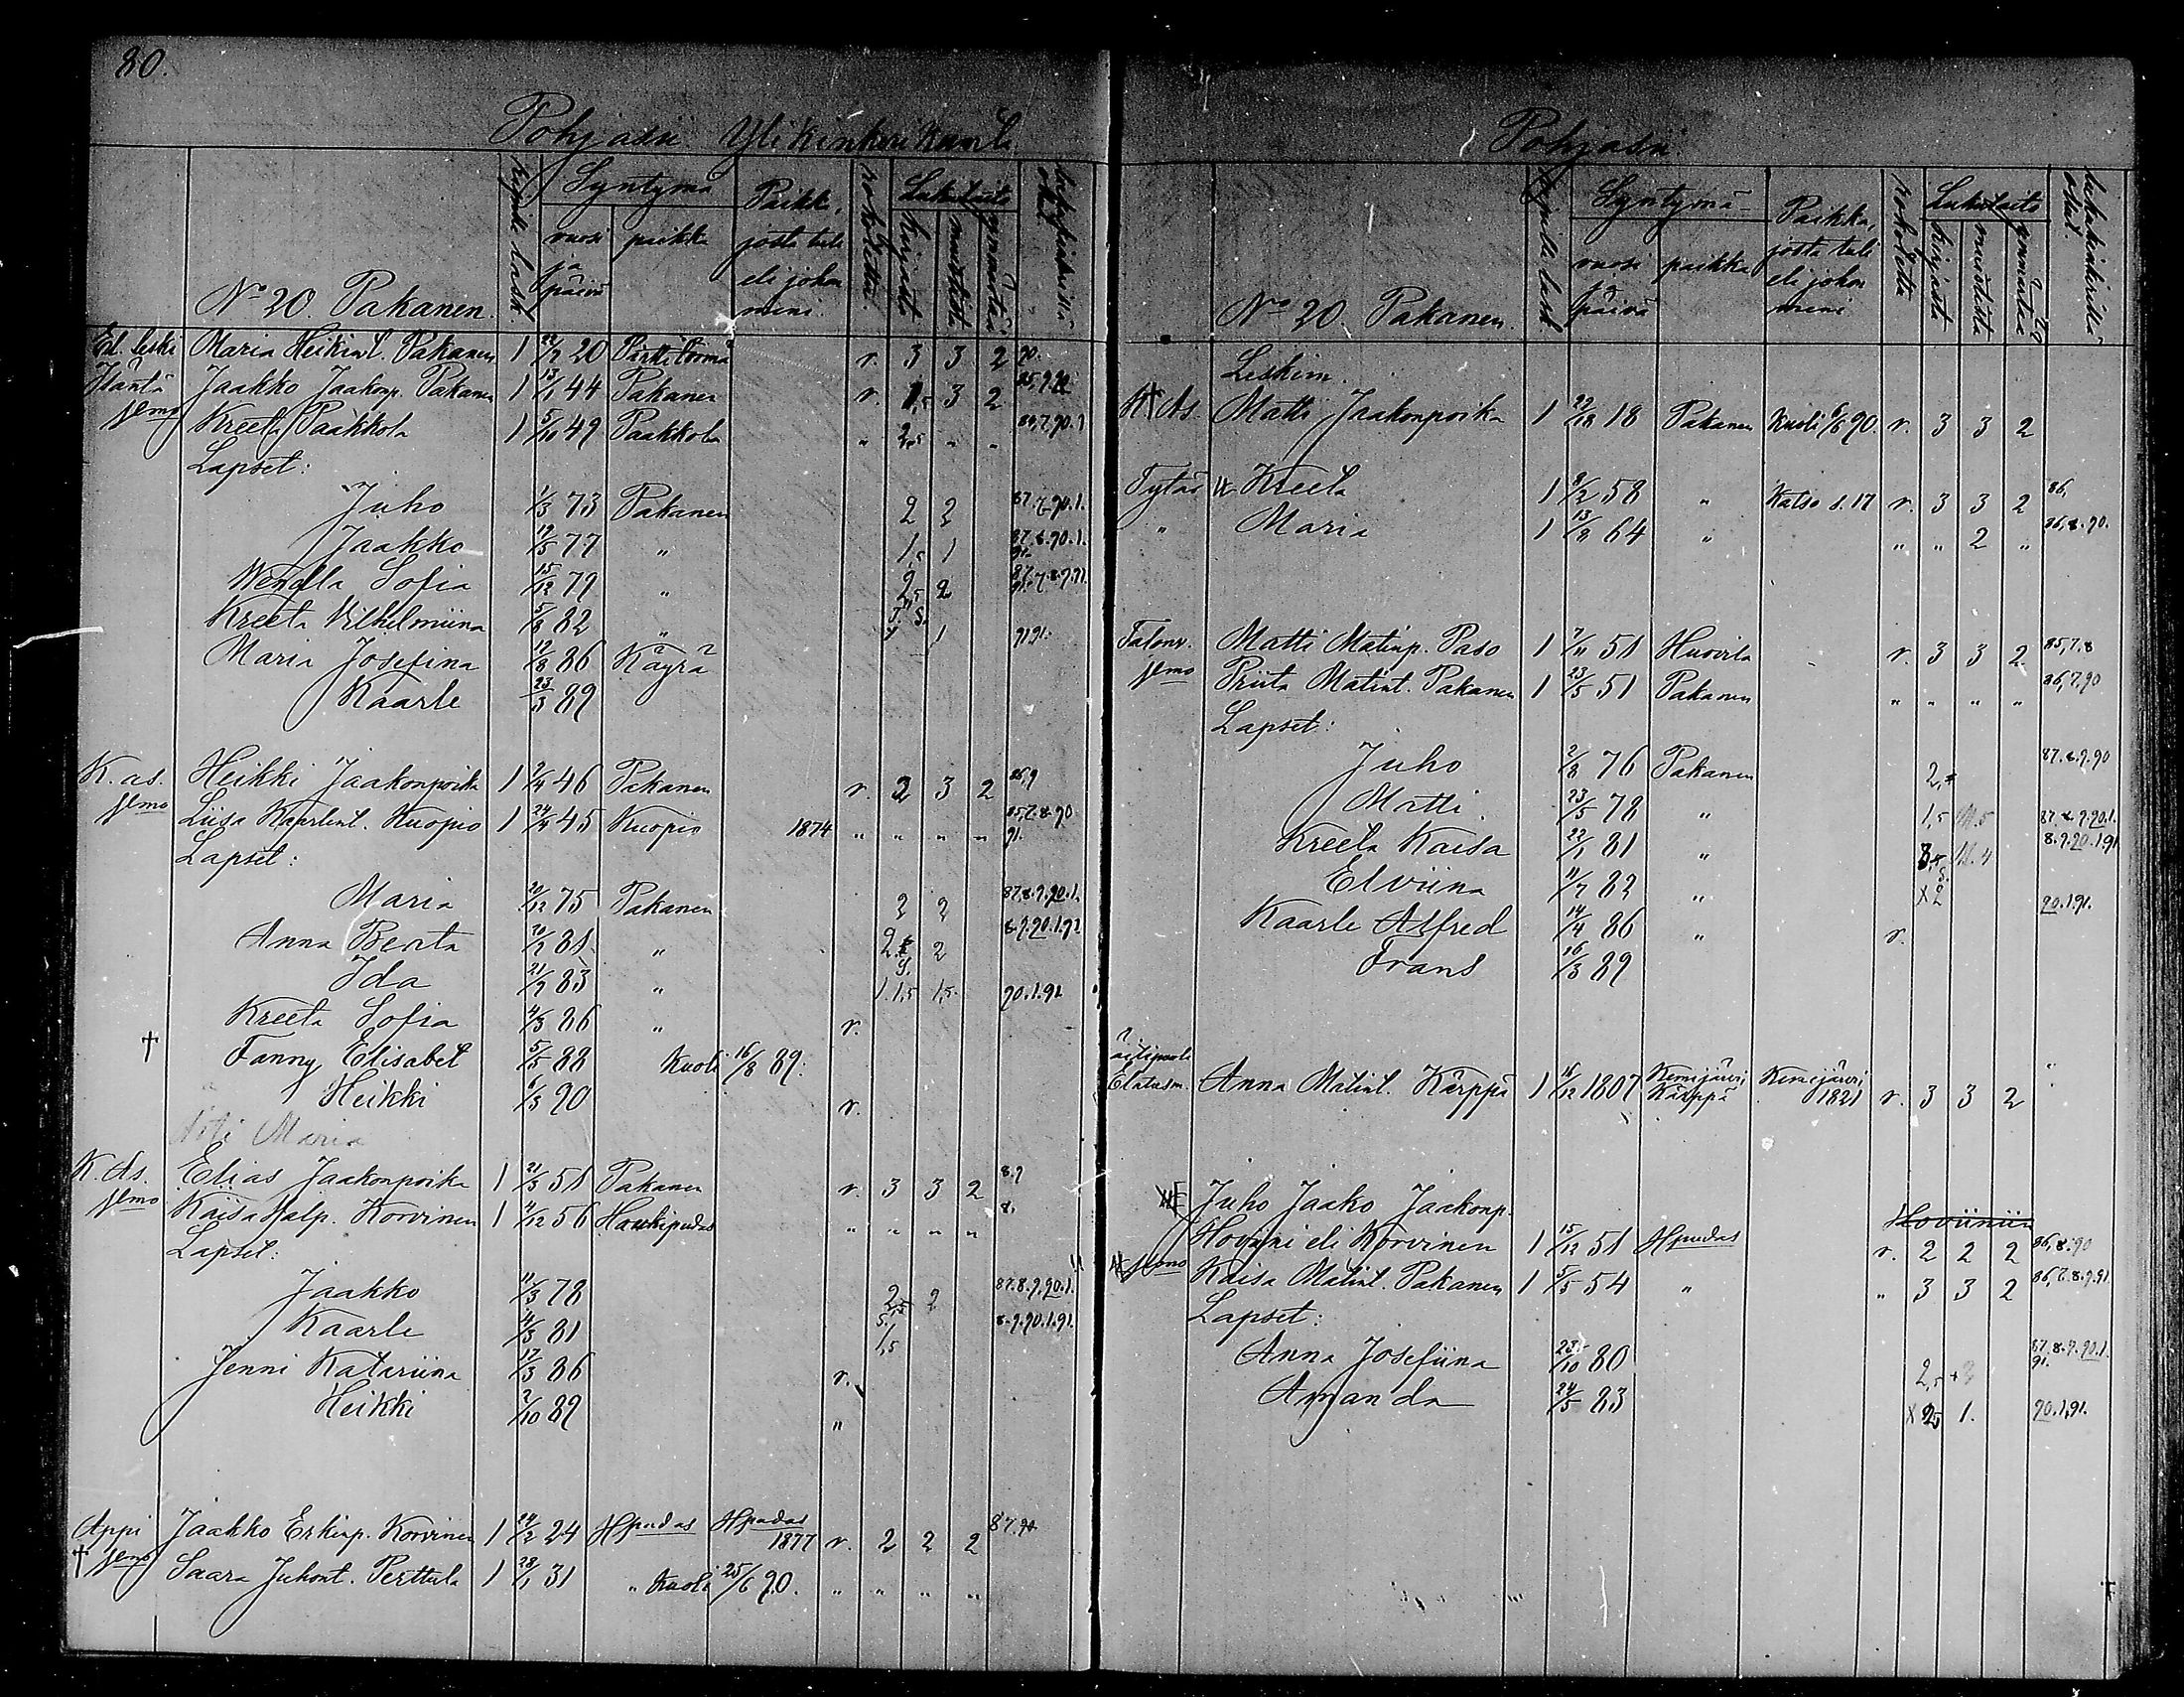 80.
Pohjasii Ylikinkerikunta
No 20. Pakanen.
Syntymä
vuosi ja päivä
paikka
Paikka, josta tuli eli johon meni.
rokotettu
Lukutaito
kirjasta
muistista
ymmärtää
Et. leski Maria Heikint. Pakanen 1 20 r. 3 3 2 90.
Isäntä Jaakko Jaakonp. Pakanen 1 13/1 44 Pakanen r. 1,5 3 2
jemo Kreeta Paakkola 1 5/10 49 Paakkola " 2,5 " "
Lapset:
Juho 1/3 73 Pakanen 2 2
Jaakko 19/5 77 " 1,5 1
Wendla Sofia 15/12 79 " 2,5 2
Kreeta Vilhelmiina 5/8 82 "
Maria Josefina 86 Käyrä
Kaarle 23/3 89
K. as. Heikki Jaakonpoika 1 46 Pakanen r. 2 3 2
jemo Liisa Kaarlent. Kuopio 1 45 Kuopio 1874 " " " "
Lapset:
Maria 20/12 75 Pakanen 2 2 87.8.9.90.1.
Anna Berta 81 " 2 2
Ida 83 " 1.1,5 1,5
Kreeta Sofia 4/3 86 " r.
† Fanny Elisabet 5/5 88 Kuoli 16/8 89.
Heikki 6/3 90 r.
Äiti Maria
K. As. Elias Jaakonpoika 1 21/3 51 Pakanen r. 3 3 2 8.9
jemo Kaisa Korvinen 1 4/12 56 Haukipudas " " " " 8.
Lapset:
Jaakko 11/3 78 2,5 2 87.8.9.90.1.
Kaarle 4/3 81 1,5 8.9.90.1.91.
Jenni Katariina 17/3 86 r.
Heikki 2/10 89 "
Appi Jaakko Erkinp. Korvinen 1 24/2 24 Hpudas Hpudas 1877 r. 2 2 2 87.90
† jemo Saara Juhont. Perttula 1 28/1 31 " Kuoli 25/6 90. " " " "
Pohjasii
No 20. Pakanen.
Syntymä
vuosi ja päivä
paikka
Paikka, josta tuli eli johon meni
rokotettu
Lukutaito
kirjasta
muistista
ymmärtää
Leskim.
As. Matti Jaakonpoika 1 18 Pakanen Kuoli 90. r. 3 3 2
Tytär Kreeta 1 8/2 58 " Katso s. 17 r. 3 3 2 86,
" Maria 1 13/8 64 " " " 2 " 86,8.90.
Talonv. Matti Matinp. Paso 1 7/11 51 Huovila r. 3 3 2 85,7.8
jemo Priita Matint. Pakanen 1 23/5 51 Pakanen " " " " 86,7.90
Lapset:
Juho 2/8 76 Pakanen 87.8.9.90
Matti 23/5 78 " 1,5
Kreeta Kaisa 22/1 81 " 8.9.90.1.91
Elviina 11/7 83 " x2 90.1.91.
Kaarle Alfred 14/4 86 " r.
Frans 16/3 89
äitipuoli
Elatusm. Anna Matint. Kärppä 1 15/12 1807 Kemijärvi Kärppä Kemijärvi 1821 r. 3 3 2
Juho Jaako Jaakonp.
Hovini eli Korvinen 1 15/12 51 Hpudas r. 2 2 2 86,8.90
jemo Kaisa Matint. Pakanen 1 5/5 54 " " 3 3 2 86,7.8.9.91.
Lapset:
Anna Josefiina 23/10 80 2,5 87.8.9.90.1. 91.
Amanda 24/5 83 1. 90.1.91.